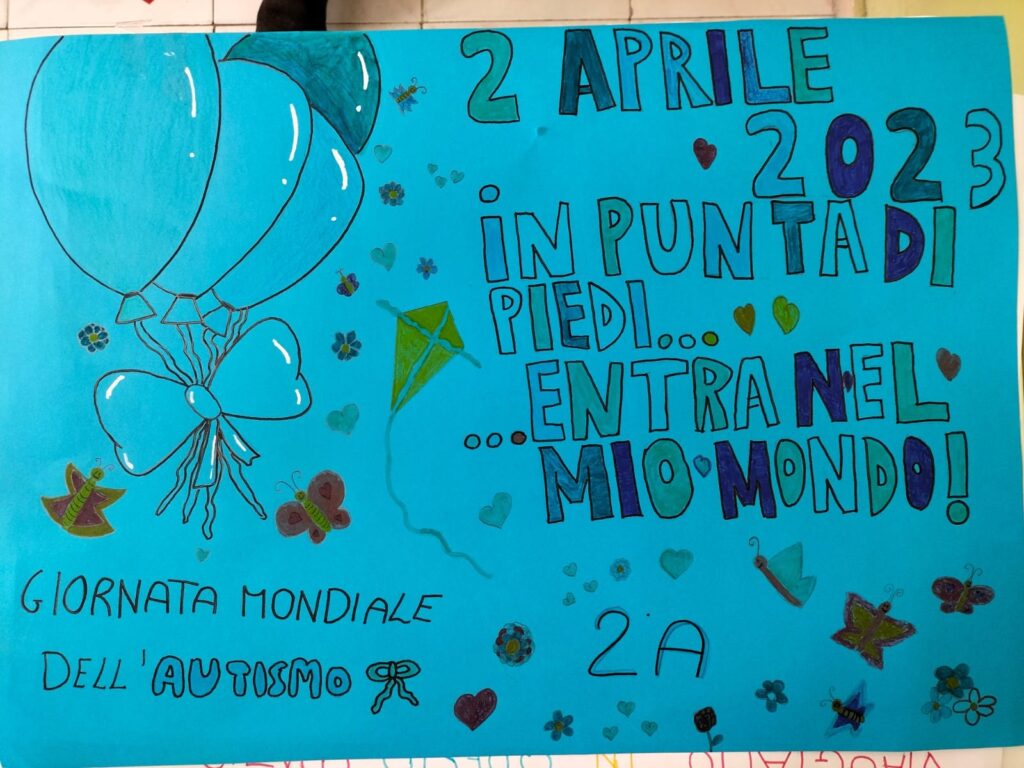 2 APRILE
2023
iN PUNTA DI
PIEDI...
...ENTRA NEL
MIO MONDO!
GIORNATA MONDIALE
DELL'AUTISMO
2A
VIAGGIAMO IN